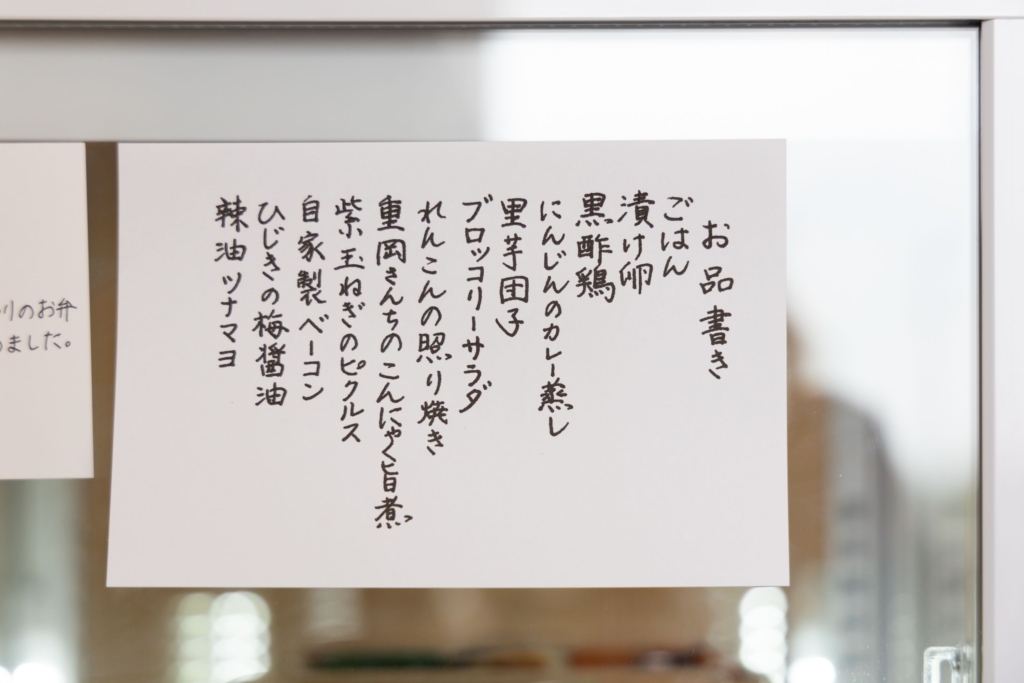 お品書き
ごはん
漬け卵
黒酢鶏
にんじんのカレー蒸し
里芋団子
ブロッコリーサラダ
れんこんの照り焼き
重岡さんちのこんにゃく旨煮
紫玉ねぎのピクルス
自家製ベーコン
ひじきの梅醤油
辣油ツナマヨ
のお弁
ました。